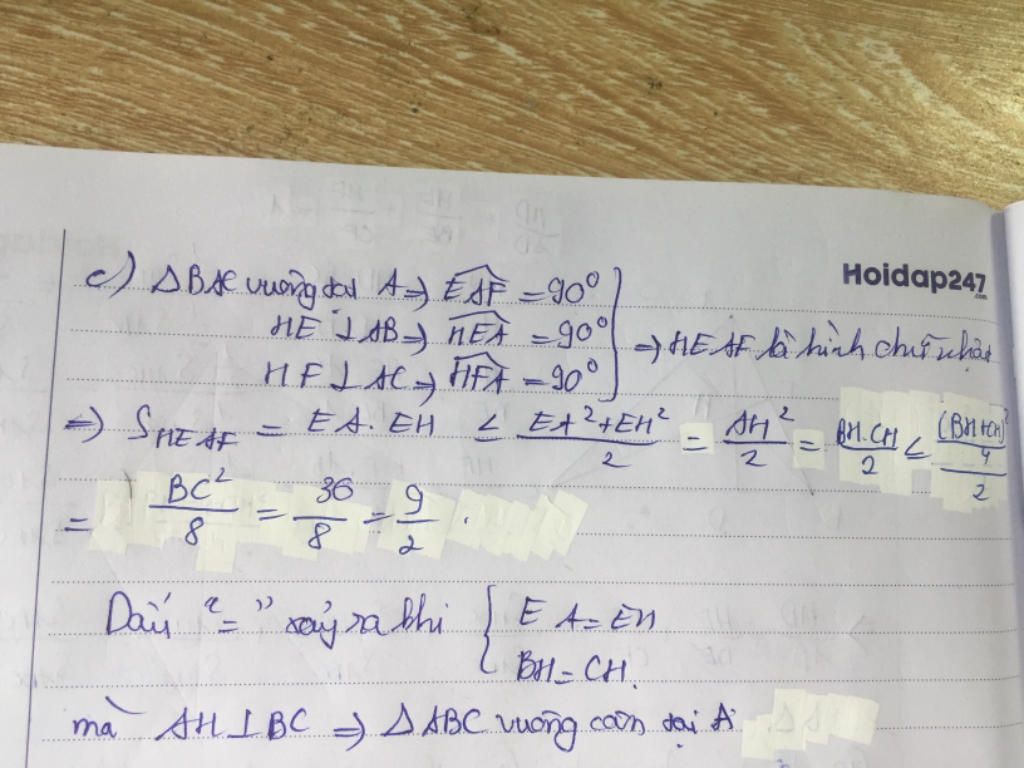 Hoidap247
.com
c) ΔBAC vuông tại A ⇒ \widehat{EAF} = 90°
HE ⊥ AB ⇒ \widehat{HEA} = 90°
HF ⊥ AC ⇒ \widehat{HFA} = 90°
⇒ HEAF là hình chữ nhật
⇒ S_{HEAF} = EA. EH ≤ \frac{EA²+EH²}{2} = \frac{AH²}{2} = \frac{BH.CH}{2} ≤ \frac{\frac{(BH+CH)²}{4}}{2}
= \frac{BC²}{8} = \frac{36}{8} = \frac{9}{2} .
Dấu "=" xảy ra khi { EA = EH
BH = CH.
mà AH ⊥ BC ⇒ ΔABC vuông cân tại A